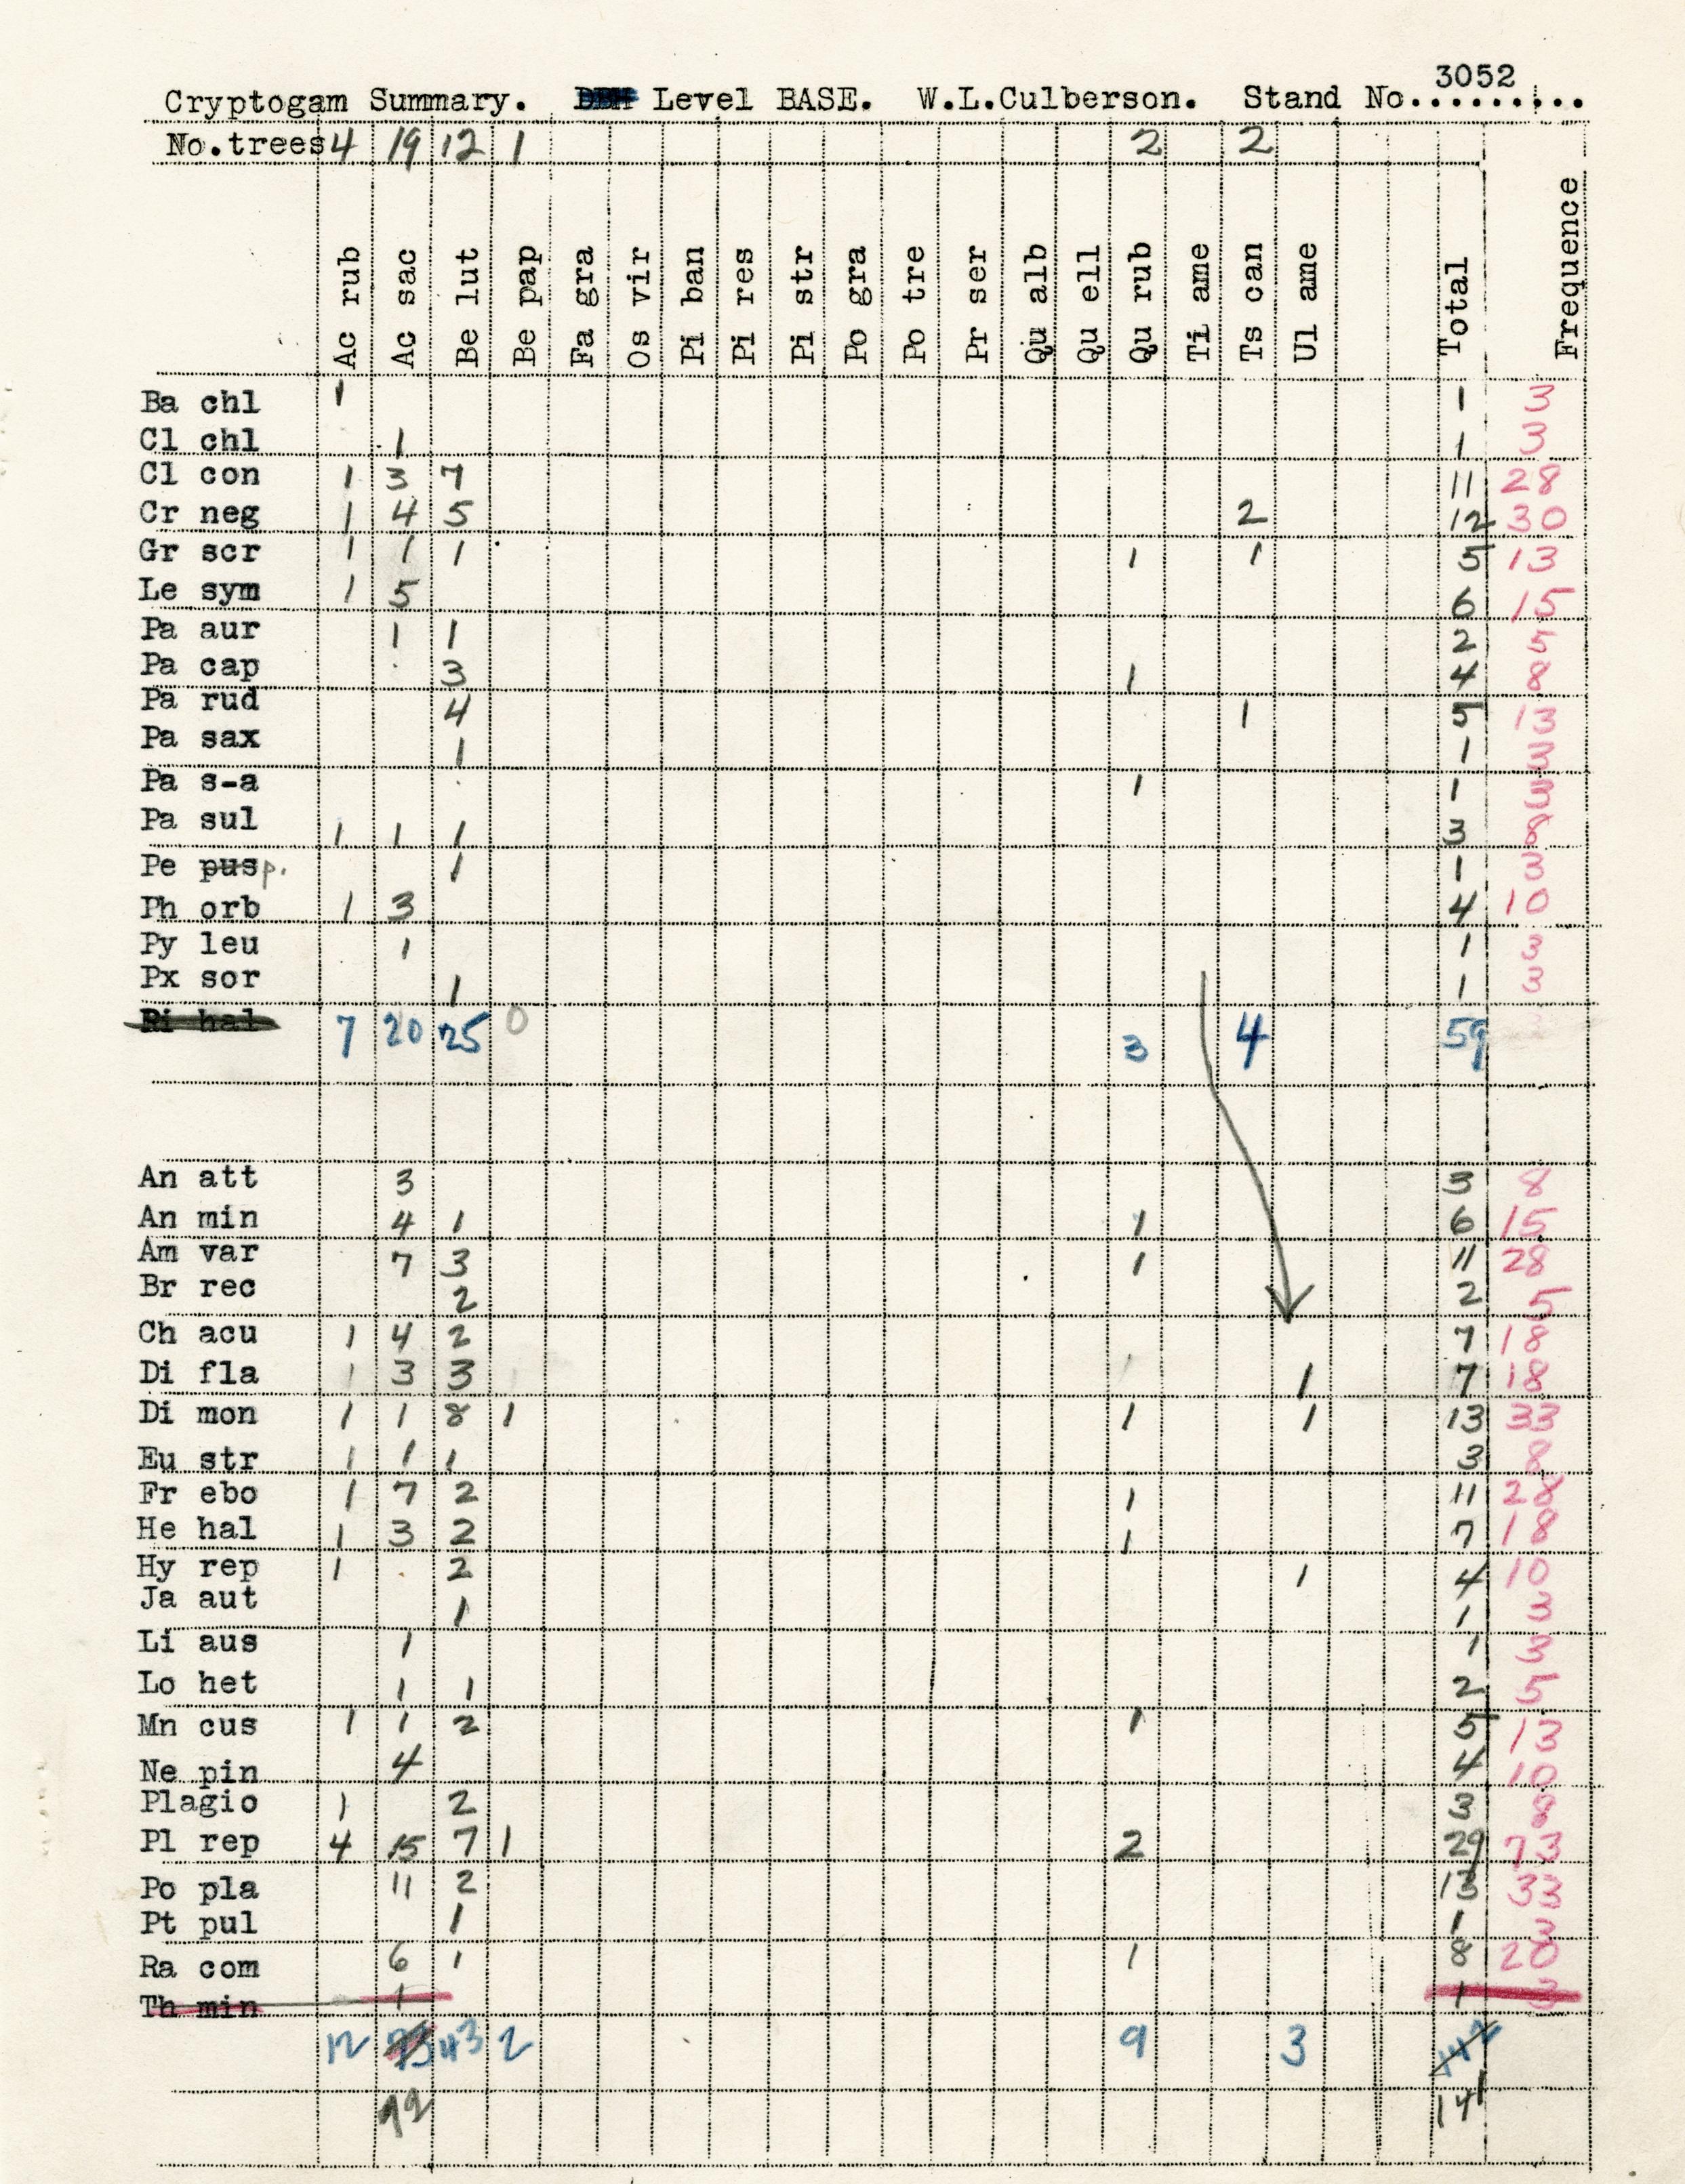 3052
Cryptogam Summary. Level BASE. W.L.Culberson. Stand No..........
No.trees 4 19 12 1 2 2
Ac rub Ac sac Be lut Be pap Fa gra Os vir Pi ban Pi res Pi str Po gra Po tre Pr ser Qu alb Qu ell Qu rub Ti ame Ts can Ul ame Total Frequence
Ba chl 1 1 3
Cl chl 1 1 3
Cl con 1 3 7 11 28
Cr neg 1 4 5 2 12 30
Gr scr 1 1 1 1 1 5 13
Le sym 1 5 6 15
Pa aur 1 1 2 5
Pa cap 3 1 4 8
Pa rud 4 1 5 13
Pa sax 1 1 3
Pa s-a 1 1 3
Pa sul 1 1 1 3 8
Pe pus p. 1 1 3
Ph orb 1 3 4 10
Py leu 1 1 3
Px sor 1 1 3
Ri hal 7 20 25 0 3 4 59
An att 3 3 8
An min 4 1 1 6 15
Am var 7 3 1 11 28
Br rec 2 2 5
Ch acu 1 4 2 7 18
Di fla 1 3 3 1 7 18
Di mon 1 1 8 1 1 1 13 33
Eu str 1 1 1 3 8
Fr ebo 1 7 2 1 11 28
He hal 1 3 2 1 7 18
Hy rep 1 2 1 4 10
Ja aut 1 1 3
Li aus 1 1 3
Lo het 1 1 2 5
Mn cus 1 1 2 1 5 13
Ne pin 4 4 10
Plagio 1 2 3 8
Pl rep 4 15 7 1 2 29 73
Po pla 11 2 13 33
Pt pul 1 1 3
Ra com 6 1 1 8 20
Th min 1 1 3
12 73 43 2 9 3 142
72 141